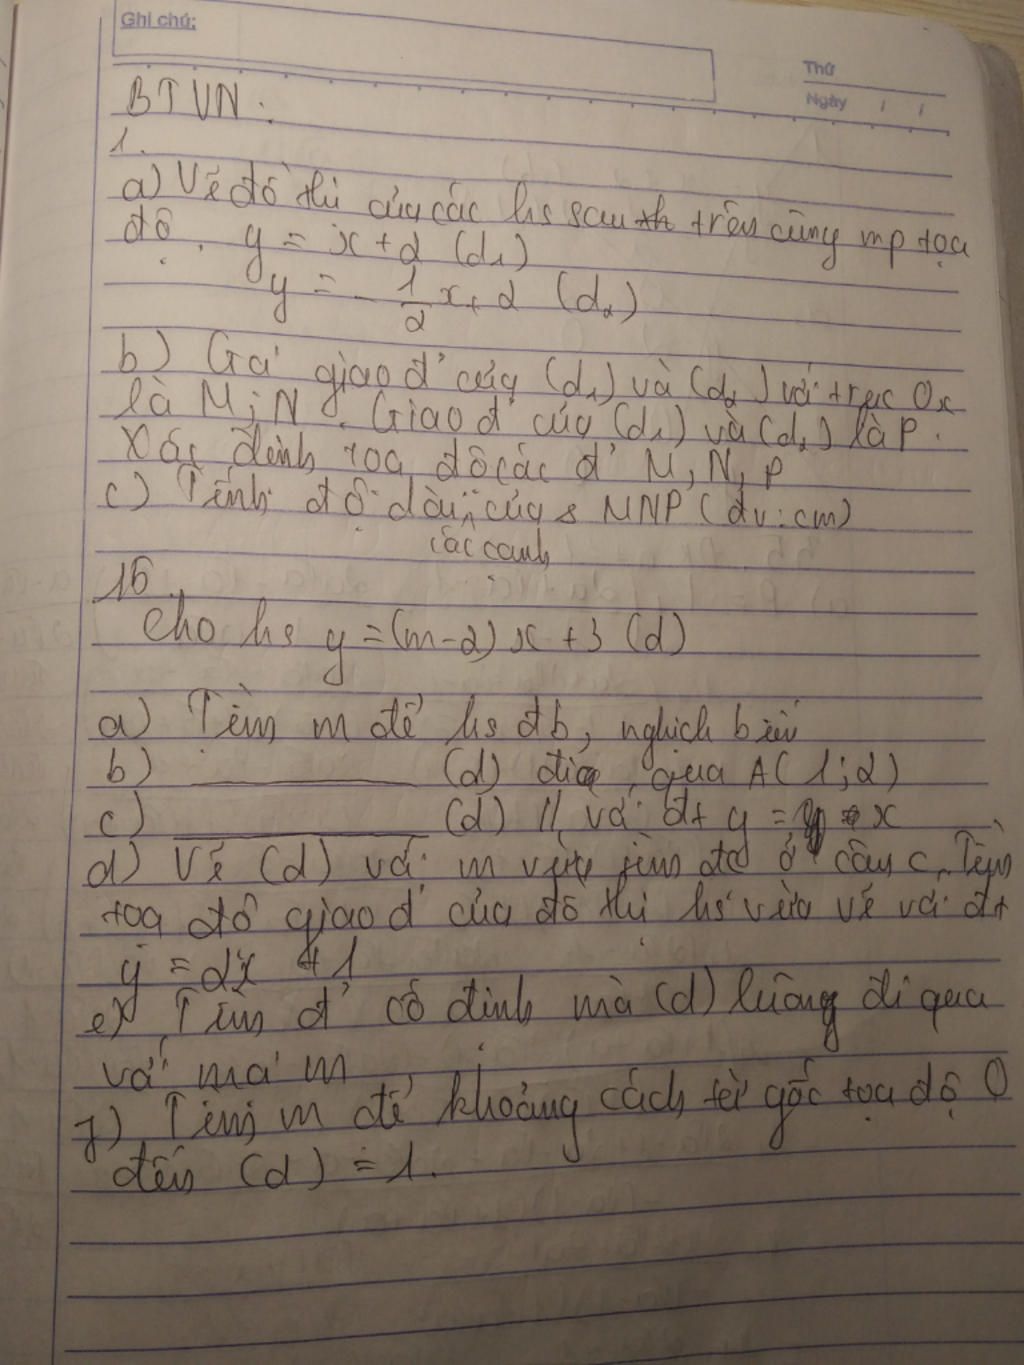 Ghi chú:
Thứ
Ngày / /
BTVN:
1.
a) Vẽ đồ thị của các hs sau trên cùng mp tọa
độ. y = x + 2 (d₁)
y = -1/2 x + 2 (d₂)
b) Gọi giao đ' của (d₁) và (d₂) với trục Ox
là M; N. Giao đ' của (d₁) và (d₂) là P.
Xác định tọa độ các đ' M, N, P
c) Tính độ dài các cạnh của Δ MNP (đv: cm)
15.
Cho hs y = (m-2) x + 3 (d)
a) Tìm m để hs đb, nghịch biến
b) ______ (d) đi qua A(1;2)
c) ______ (d) // với đt y = x
d) Vẽ (d) với m vừa tìm đc ở câu c, Tìm
tọa độ giao đ' của đồ thị hs vừa vẽ với đt
y = 2x + 1
e) Tìm đ' cố định mà (d) luôn đi qua
với mọi m
f) Tìm m để khoảng cách từ gốc tọa độ O
đến (d) = 1.